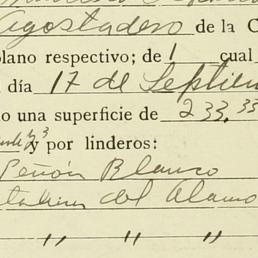 Agostadero de la C
plano respectivo; de 1 cual
día 17 de Septiem
o una superficie de 233.33
y por linderos:
Peñón Blanco
del Alamo
" " "